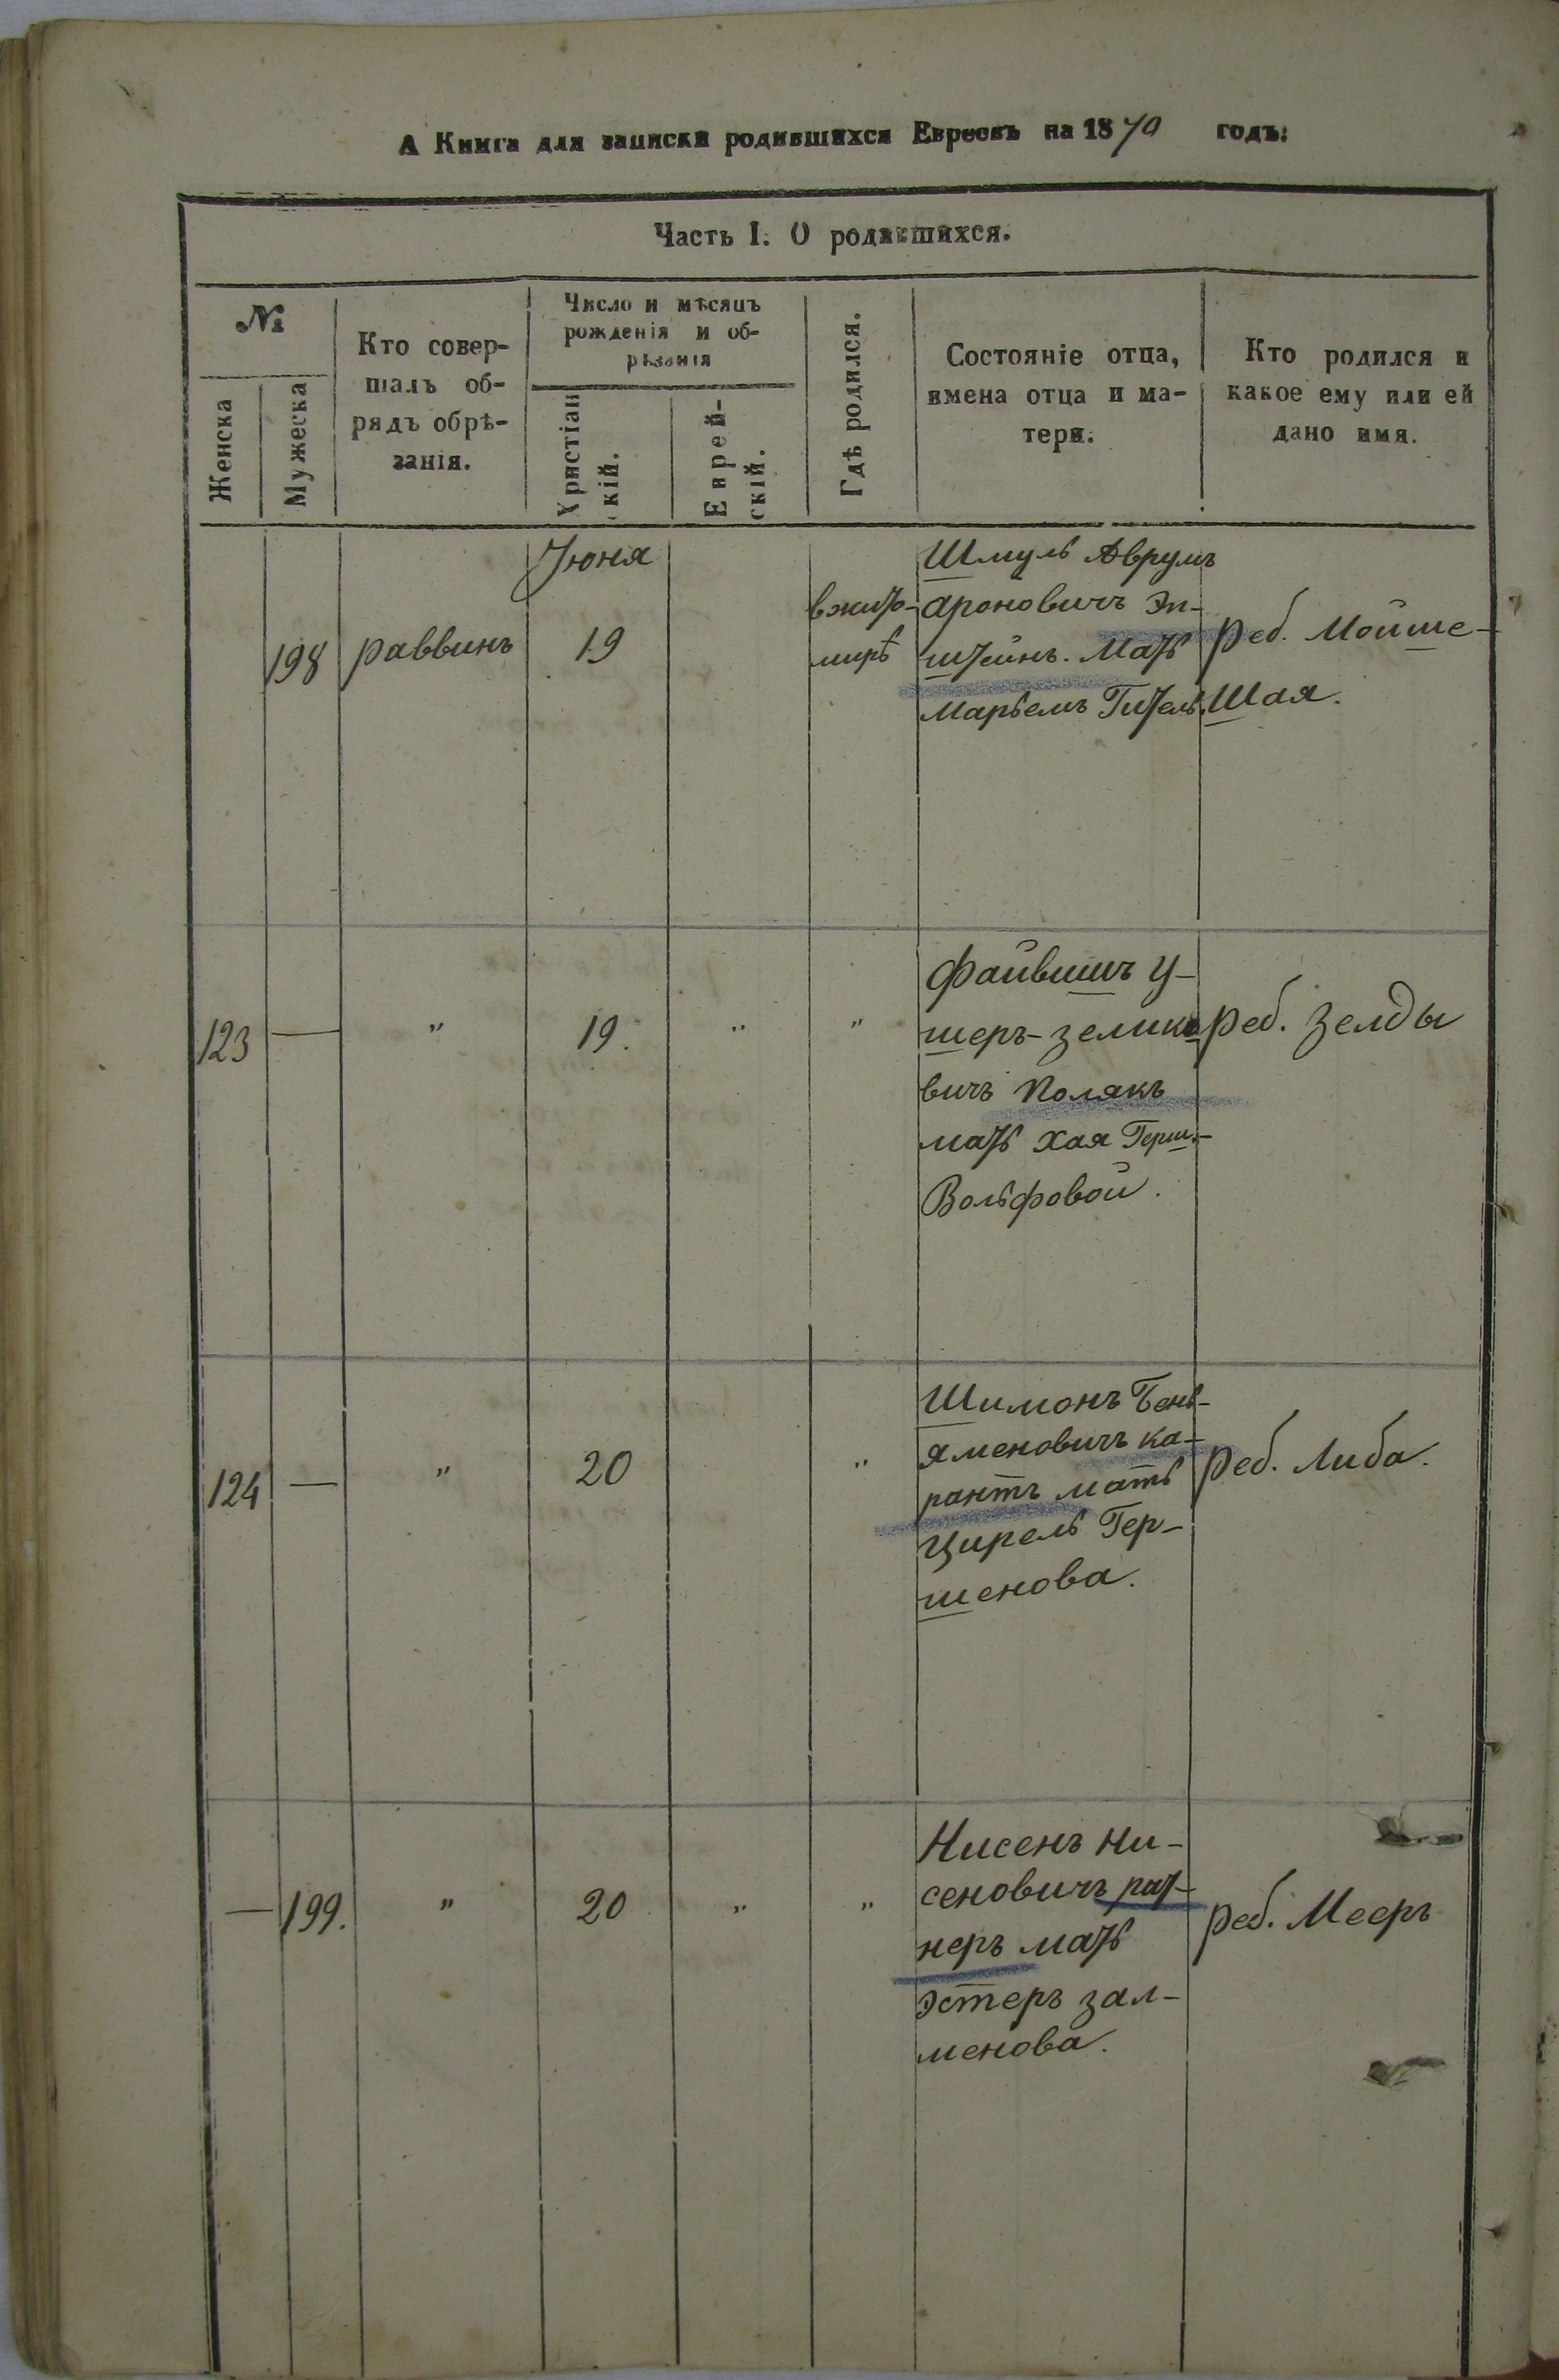 А Книга для записки родившихся Евреевъ на 1870 годъ.
Часть I. О родившихся.
№
Женска
Мужеска
Кто совер-
шалъ об-
рядъ обрѣ-
занія.
Число и мѣсяцъ
рожденія и об-
рѣзанія
Христіан
скій.
Еврей-
скій.
Гдѣ родился.
Состояніе отца,
имена отца и ма-
тери.
Кто родился и
какое ему или ей
дано имя.
198
раввинъ
Іюня
19
в жито-
мирѣ
Шмуль Аврумъ
Ароновичъ Эп-
штейнъ. Мать
Марьемъ Гитель.
Реб. Мойше-
Шая.
123
—
"
19.
"
"
Файвишъ У-
шеръ-Зелико
вичъ Полякъ
мать Хая Герш.-
Вольфовой.
Реб. Зелды
124
—
"
20
"
Шимонъ Бень-
яменовичъ Ка-
рантъ мать
Цирель Гер-
шенова.
Реб. Либа.
—
199.
"
20
"
"
Нисенъ Ни-
сеновичъ Рат-
неръ мать
Эстеръ Зал-
менова.
Реб. Мееръ